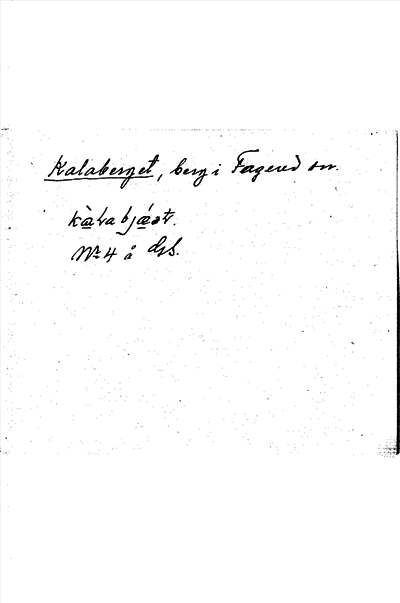 Kalaberget, berg i Fagered sn.
kàlabjǽrt.
Nr 4 å